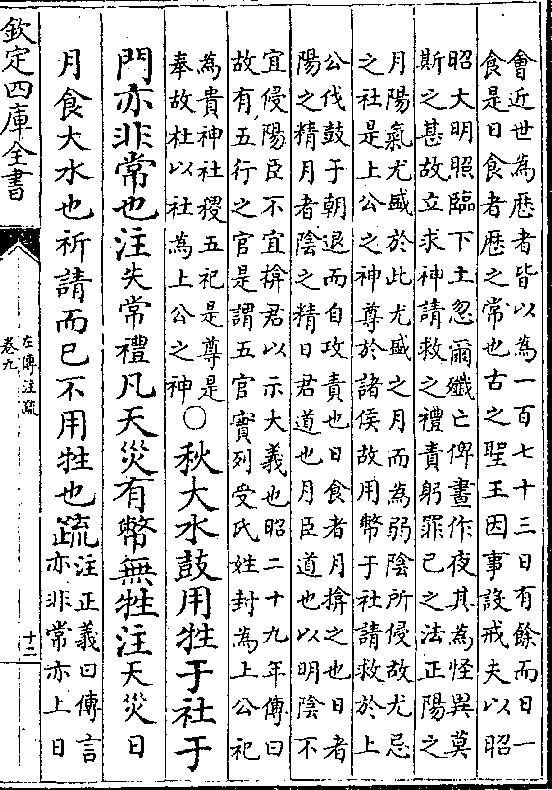 會近世為歴者皆以為一百七十三日有餘而日一
食是日食者歴之常也古之聖王因事設戒夫以昭
昭大明照臨下土忽爾殲亡俾晝作夜其為怪異莫
斯之甚故立求神請救之禮責躬罪己之法正陽之
月陽氣尤盛於此尤盛之月而為弱陰所侵故尤忌
之社是上公之神尊於諸侯故用幣于社請救於上
公伐鼓于朝退而自攻責也日食者月揜之也日者
陽之精月者陰之精日君道也月臣道也以明陰不
宜侵陽臣不宜揜君以示大義也昭二十九年傳曰
故有五行之官是謂五官實列受氏姓封為上公祀
為貴神社稷五祀是尊是
奉故杜以社為上公之神
○秋大水鼓用牲于社于
門亦非常也注失常禮凡天災有幣無牲注天災日
月食大水也祈請而已不用牲也疏
注正義曰傳言
亦非常亦上日
欽定四庫全書
左傳注疏
卷九
十二